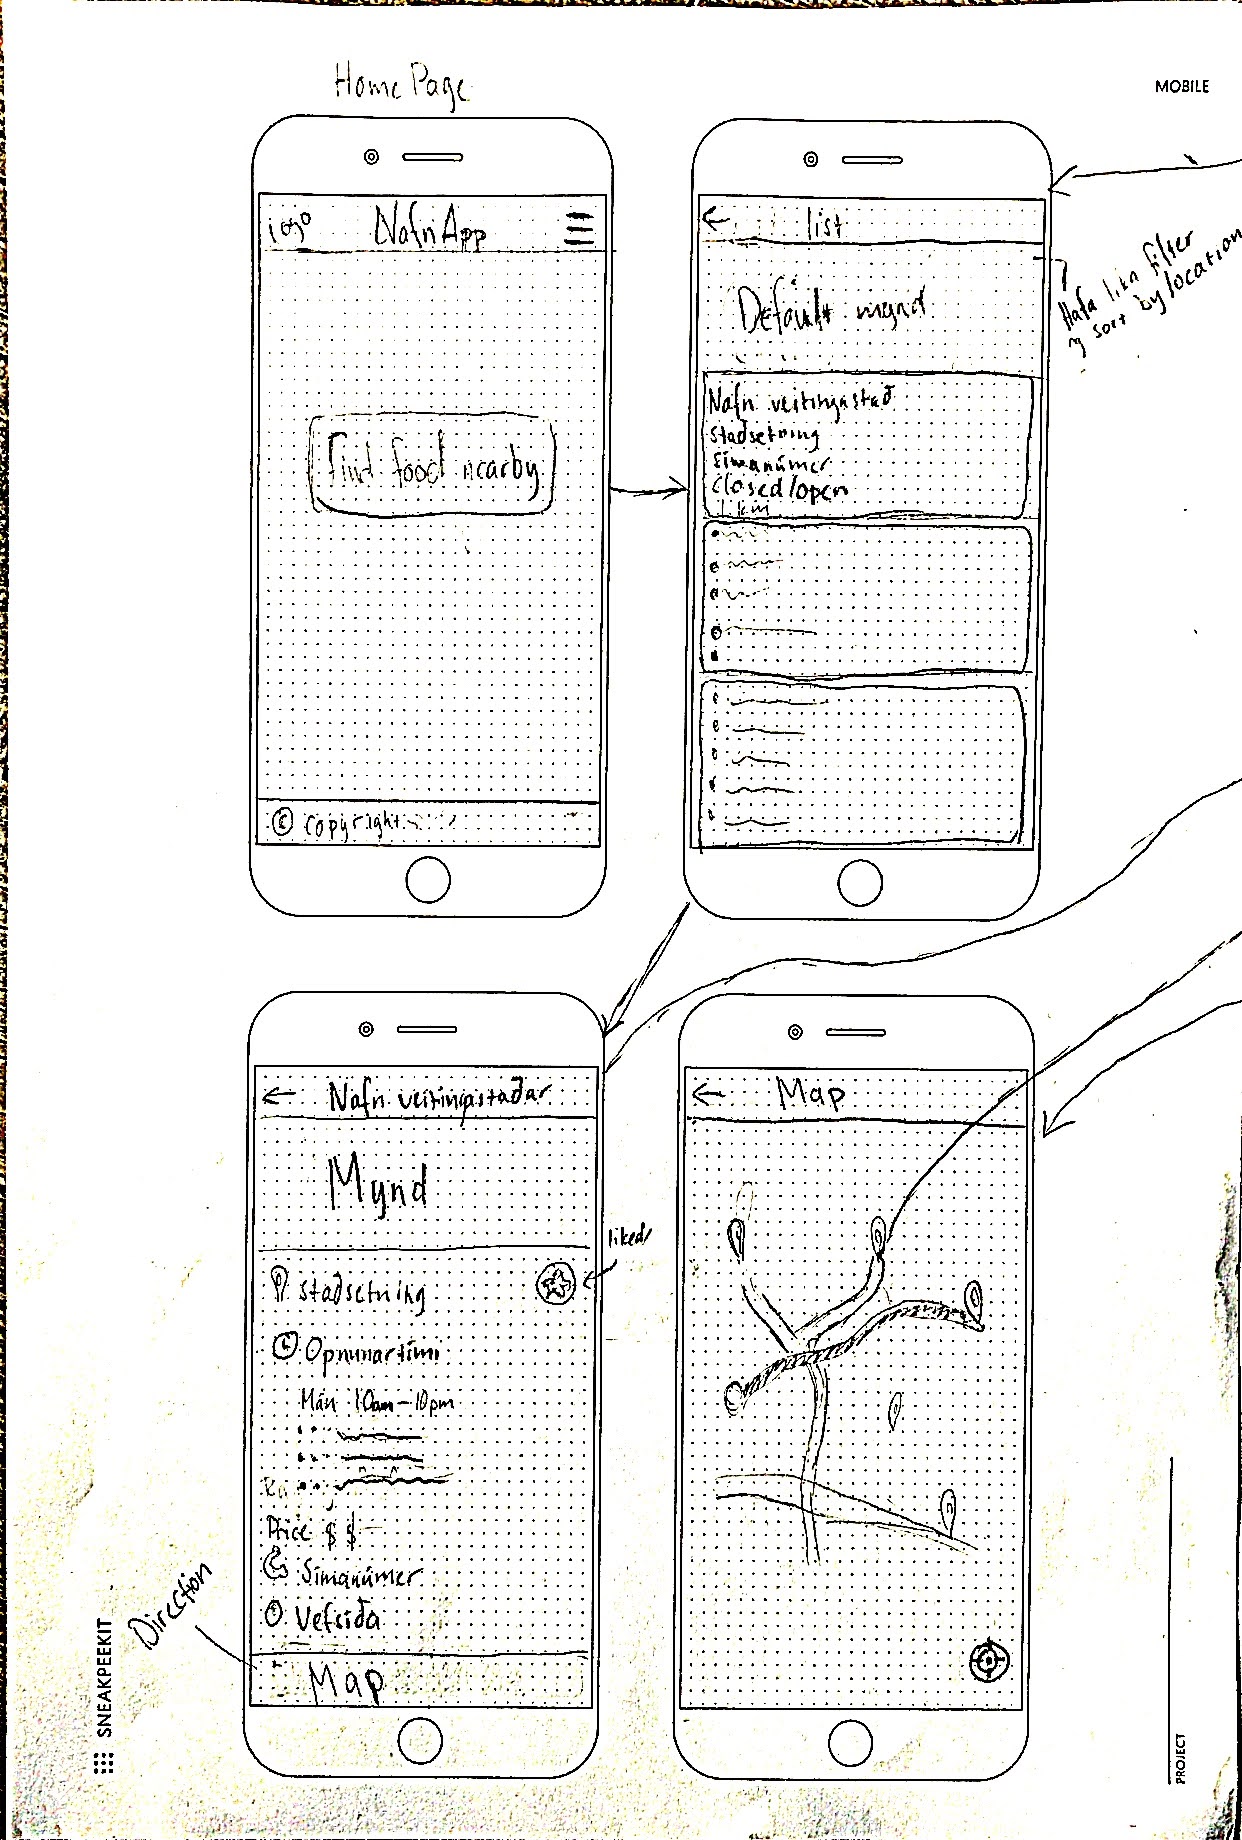 Home Page
MOBILE
logo
Nafn App
Find food nearby
© copyright
list
Hafa líka filter
og sort by location
Default mynd
Nafn veitingastað
Staðsetning
Símanúmer
Closed/open
1 km
Nafn veitingastaðar
Mynd
liked
Staðsetning
Opnunartími
Mán 10am - 10pm
Price $ $
Símanúmer
Vefsíða
Direction
Map
Map
SNEAKPEEKIT
PROJECT